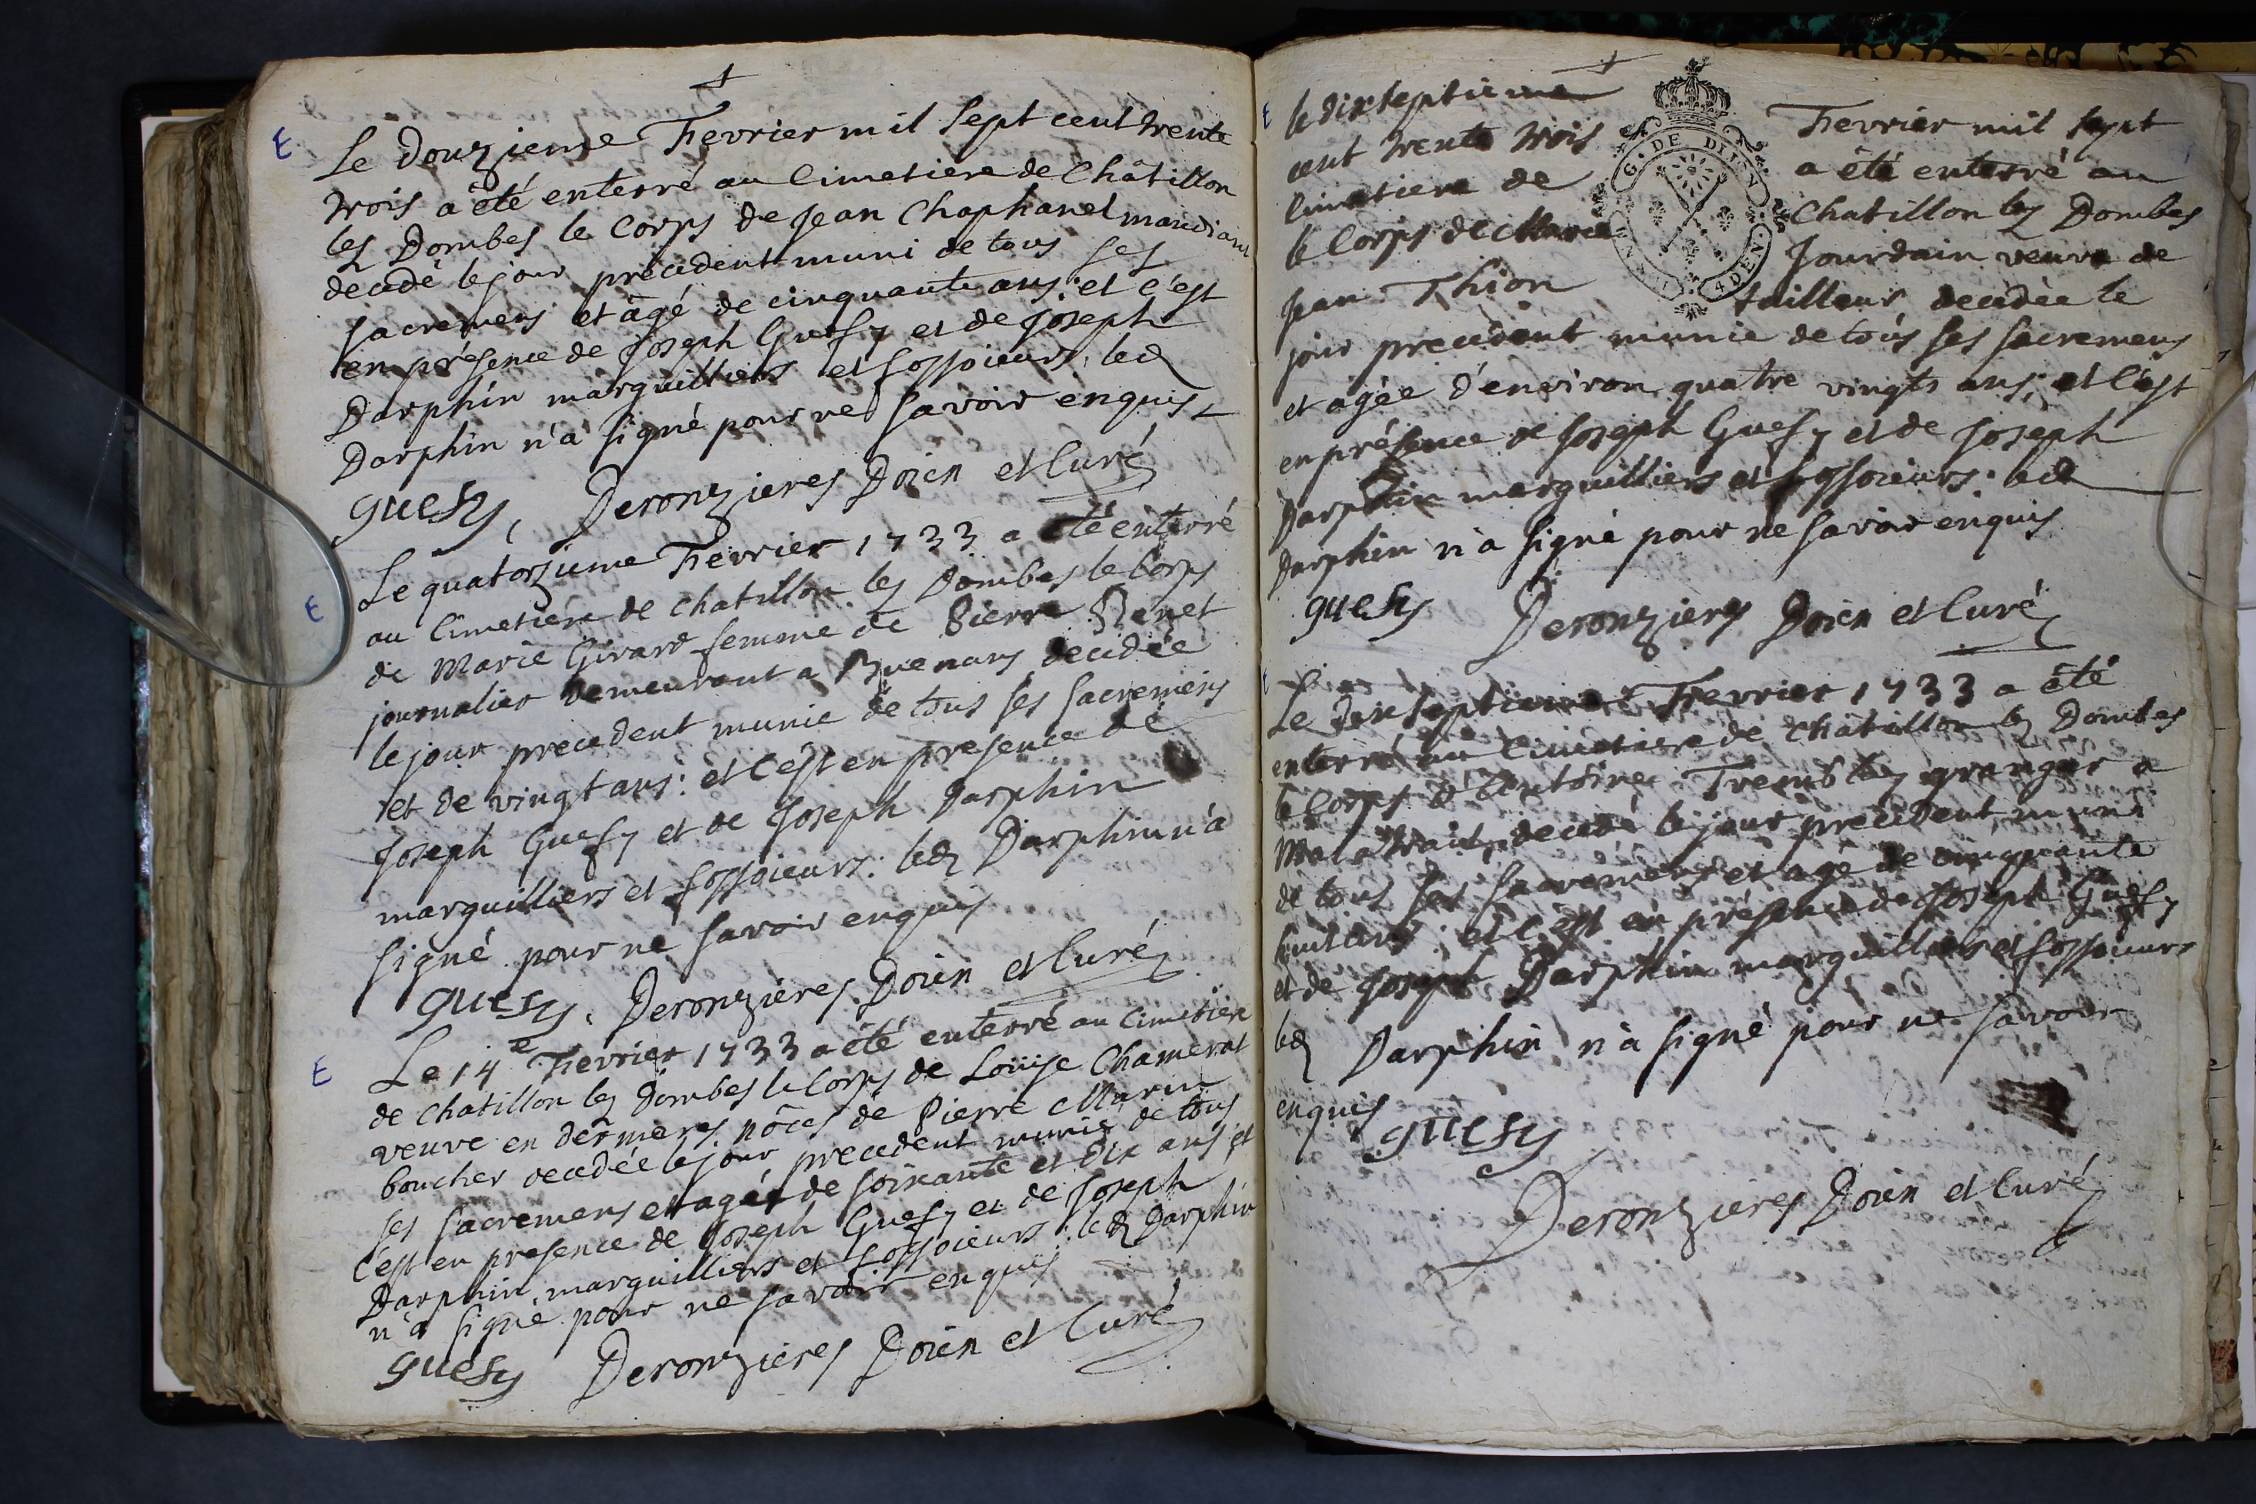 E
Le douzieme Fevrier mil sept cent trente
trois a été enterré au Cimetiere de Châtillon
lez Dombes le Corps de Jean Chaphanel mandiant
decedé le jour précédent muni de tous ses
sacremens et âgé de cinquante ans: et c'est
en présence de Joseph Guesy et de Joseph
Darphin marguilliers et fossoieurs: led
Darphin n'a signé pour ne savoir enquis
guesy, Deronzieres Doien et Curé
E
Le quatorzieme Fevrier 1733 a été enterré
au Cimetiére de chatillon lez Dombes le Corps
de Marie Girard femme de Pierre Benet
journalier demeurant a Buenans decédée
le jour precedent munie de tous ses sacremens
et de vingt ans: et c'est en presence de
Joseph Guesy et de Joseph Darphin
marguilliers et fossoieurs: led Darphin n'a
signé pour ne savoir enquis
guesy, Deronzieres Doien et Curé
E
Le 14e Fevrier 1733 a été enterré au Cimetiere
de chatillon lez Dombes le Corps de Loüise Chamerat
veuve en dernieres nôces de Pierre Marin
boucher decedée le jour precedent munie de tous
ses sacremens et agée de soixante et dix ans et
c'est en presence de Joseph Guesy et de Joseph
Darphin marguilliers et fossoieurs: led Darphin
n'a signé pour ne savoir enquis
guesy Deronzieres Doien et Curé
E
le dixseptieme Fevrier mil sept
cent trente trois a été enterré au
Cimetiere de Chatillon lez Dombes
le Corps de Marie Jourdain veuve de
Jean Thion tailleur decedée le
G. DE DIJON
jour precédent munie de tous ses sacremens
et agée d'environ quatre vingts ans; et c'est
en présence de Joseph Guesy et de Joseph
Darphin marguilliers et fossoieurs: led
Darphin n'a signé pour ne savoir enquis
guesy Deronzieres Doien et Curé
Le dixseptieme Fevrier 1733 a été
enterré au Cimetiere de Chatillon lez Dombes
le Corps d'Antoine Tremblay granger a
decedé le jour précédent muni
de tous ses sacremens et agé de cinquante
et c'est en présence de Joseph Guesy
et de Joseph Darphin marguilliers et fossoieurs
led Darphin n'a signé pour ne savoir
enquis
guesy
Deronzieres Doien et Curé